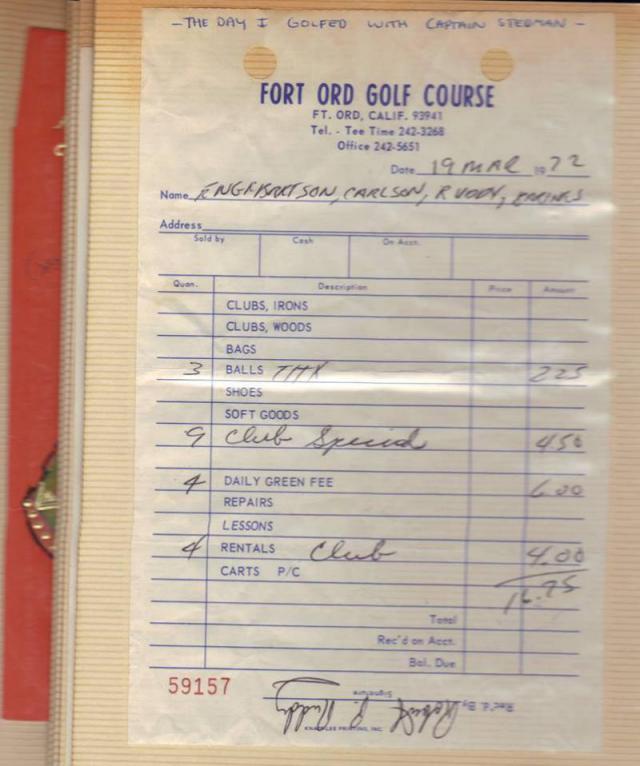 - THE DAY I GOLFED WITH CAPTAIN STEDMAN -
FORT ORD GOLF COURSE
FT. ORD, CALIF. 93941
Tel. - Tee Time 242-3268
Office 242-5651
Date 19 MAR 1972
Name ENGRBRETSON, CARLSON, RUDDY,
Address
Sold by Cash On Acct.
Quan. Description Price Amount
CLUBS, IRONS
CLUBS, WOODS
BAGS
3 BALLS 225
SHOES
SOFT GOODS
9 Club Special 450
4 DAILY GREEN FEE 6.00
REPAIRS
LESSONS
4 RENTALS Club 4.00
CARTS P/C
16.75
Total
Rec'd on Acct.
Bal. Due
59157
Rec'd. By Robert Ruddy
Signature
PRINTING, INC